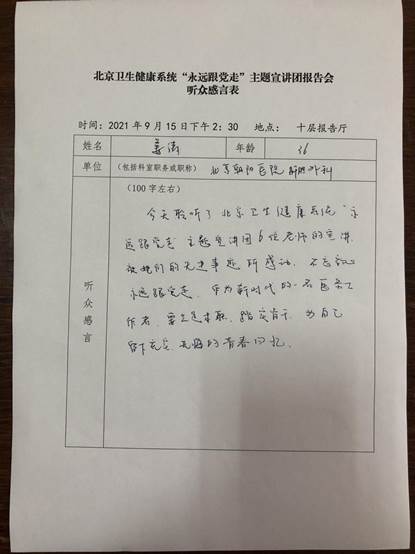 北京卫生健康系统“永远跟党走”主题宣讲团报告会
听众感言表
时间：2021年9月15日下午2：30 地点： 十层报告厅
姓名 姜涛 年龄 36
单位 （包括科室职务或职称） 北京朝阳医院 肝胆外科
（100字左右）
听众感言
今天聆听了北京卫生健康系统“永
远跟党走”主题宣讲团6位老师的宣讲
被她们的先进事迹所感动，不忘初心
永远跟党走，作为新时代的一名医务工
作者，要立足本职，踏实肯干，为自己
留下充实、无悔的青春回忆。